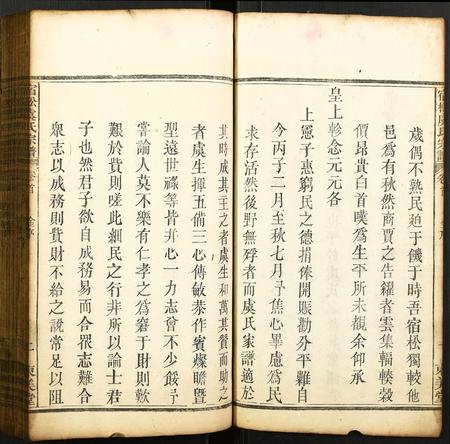 歲偶不熟民廹于饑于時吾宿松獨較他
邑爲有秋然商賈之告糴者雲集輻輳穀
價昂貴白首嘆爲生平所未覩余仰承
皇上軫念元元各
上憲子惠窮民之德捐俸開賑勸分平糶自
今丙子二月至秋七月予焦心畢慮爲民
求存活然後野無殍者而虞氏家譜適於
其時成其主之者虞生和萬其贊而助之
者虞生揮五備三心傳敏恭作賓燦瞻曁
型遠世祿等皆并心一力志會不少餒予
嘗論人莫不樂有仁孝之爲窘于財則歉
艱於費則嗟此細民之行非所以論士君
子也然君子欲自成務易而合眾志難合
眾志以成務則貲財不給之說常足以阻
宿松虞氏宗譜
卷首
二
東美堂
宿松虞氏宗譜
東美堂